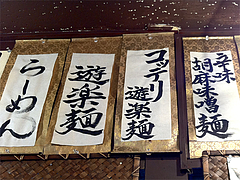 らーめん
遊楽麺
コッテリ
遊楽麺
辛味
胡麻味噌麺